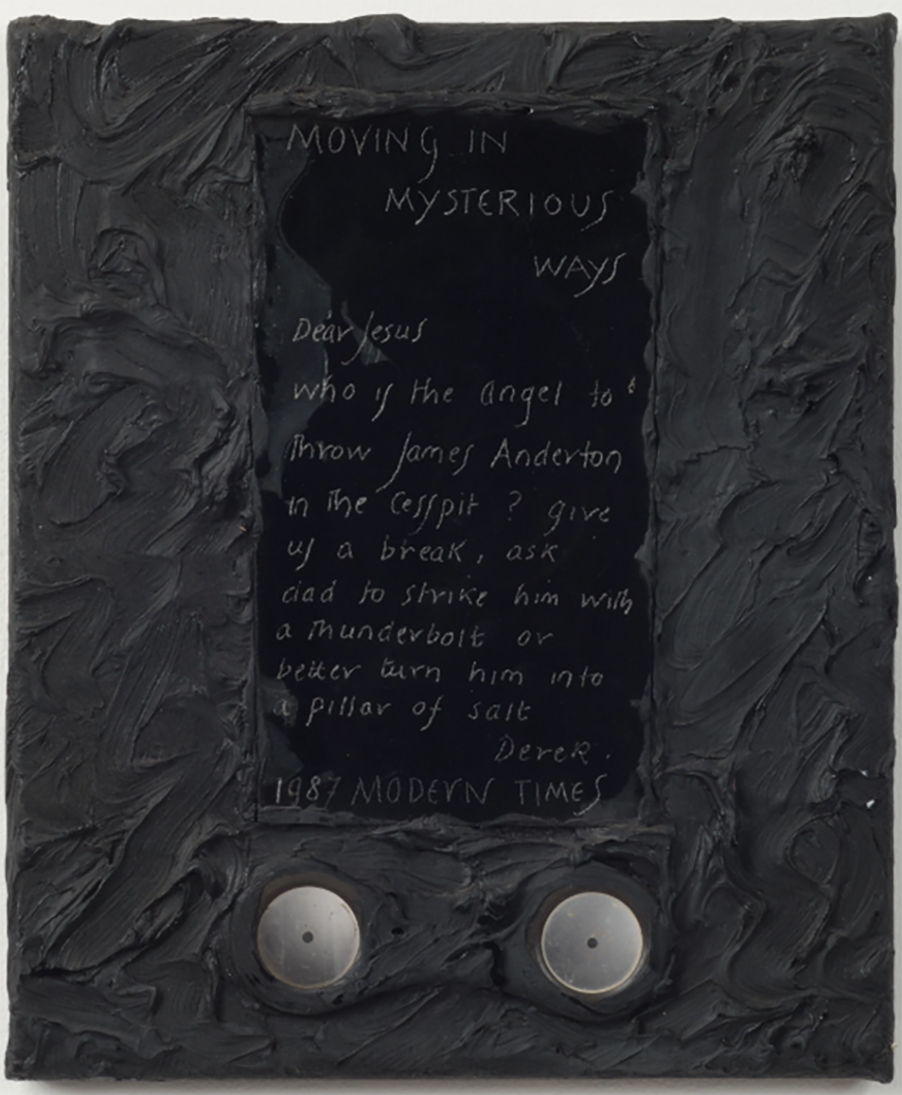 MOVING IN
MYSTERIOUS
WAYS
Dear Jesus
who is the angel to
Throw James Anderton
in The Cesspit ? give
us a break, ask
dad to strike him with
a Thunderbolt or
better turn him into
a pillar of salt
Derek.
1987 MODERN TIMES